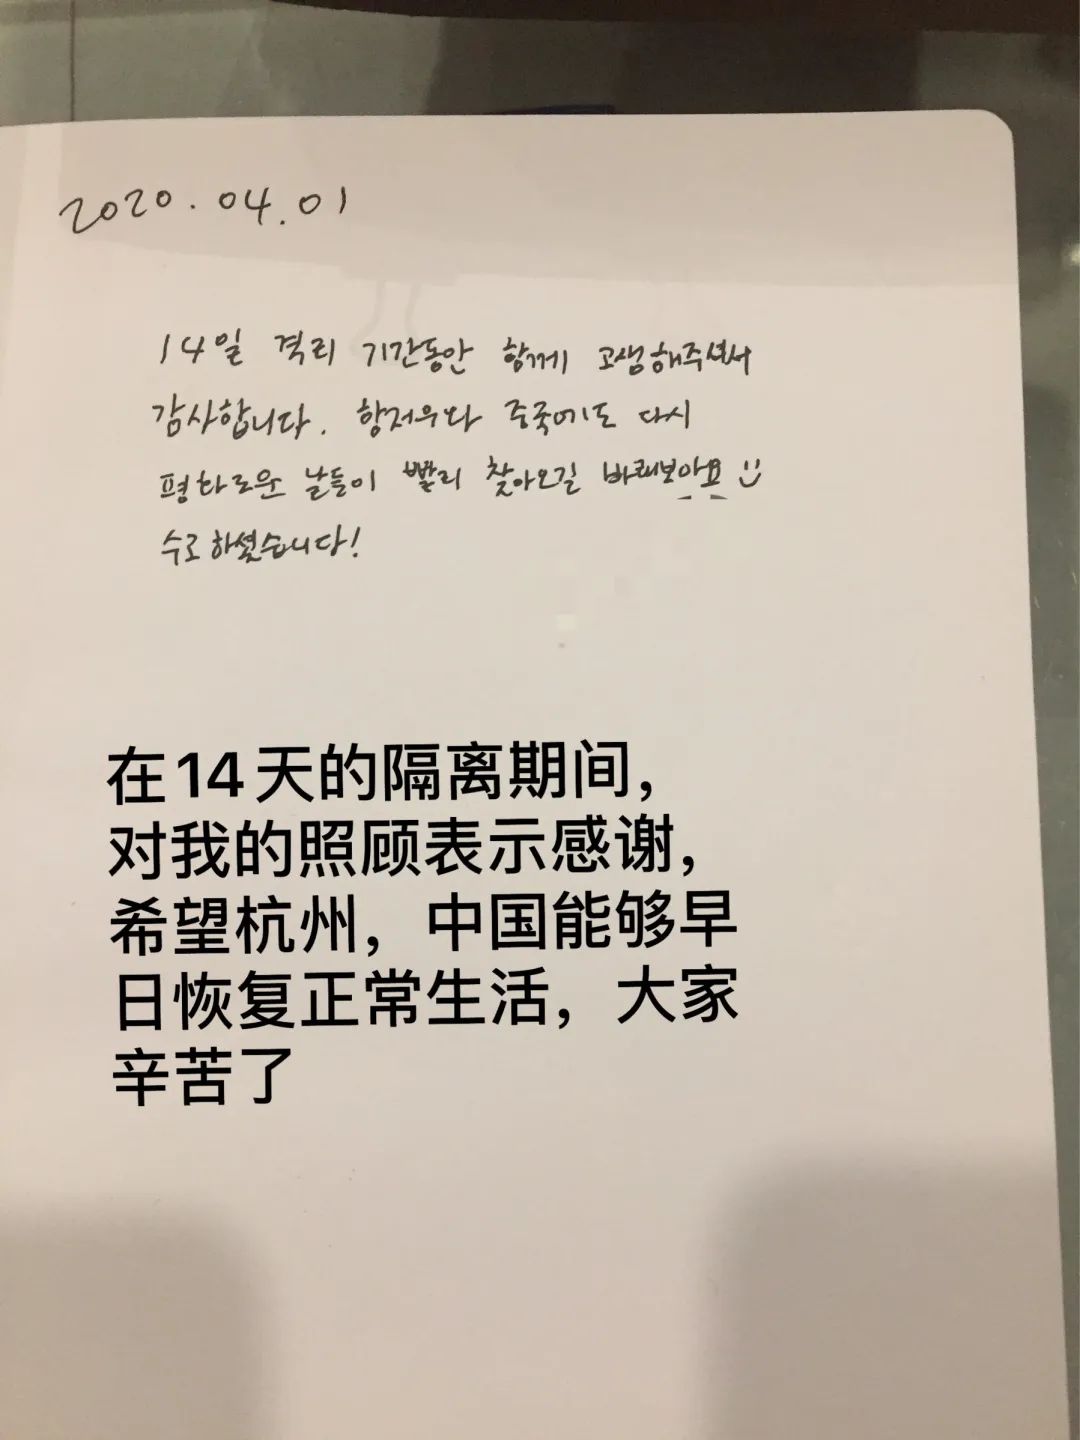 2020.04.01
14일 격리 기간동안 함께 고생해주셔서
감사합니다. 항저우와 중국에도 다시
평화로운 날들이 빨리 찾아오길 바래보아요
수고하셨습니다!
在14天的隔离期间，
对我的照顾表示感谢，
希望杭州，中国能够早
日恢复正常生活，大家
辛苦了